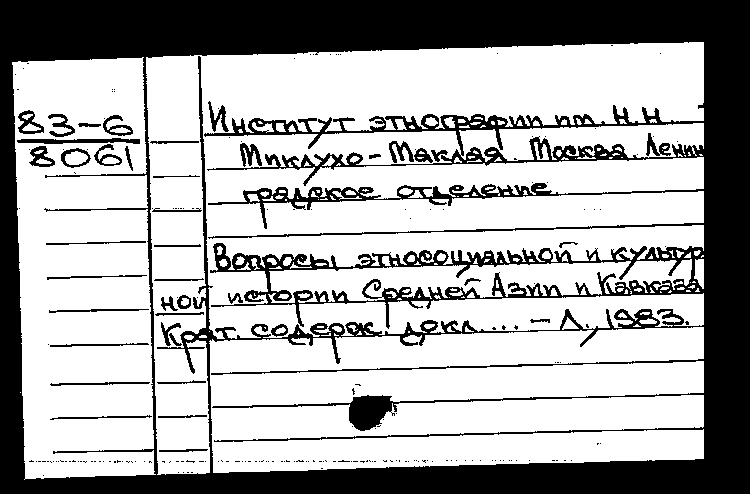 83-6
8061
Институт этнографии им. Н.Н.
Миклухо-Маклая. Москва. Ленин
градское отделение.
Вопросы этносоциальной и культур
ной истории Средней Азии и Кавказа
Крат. содерж. докл.... – Л., 1983.